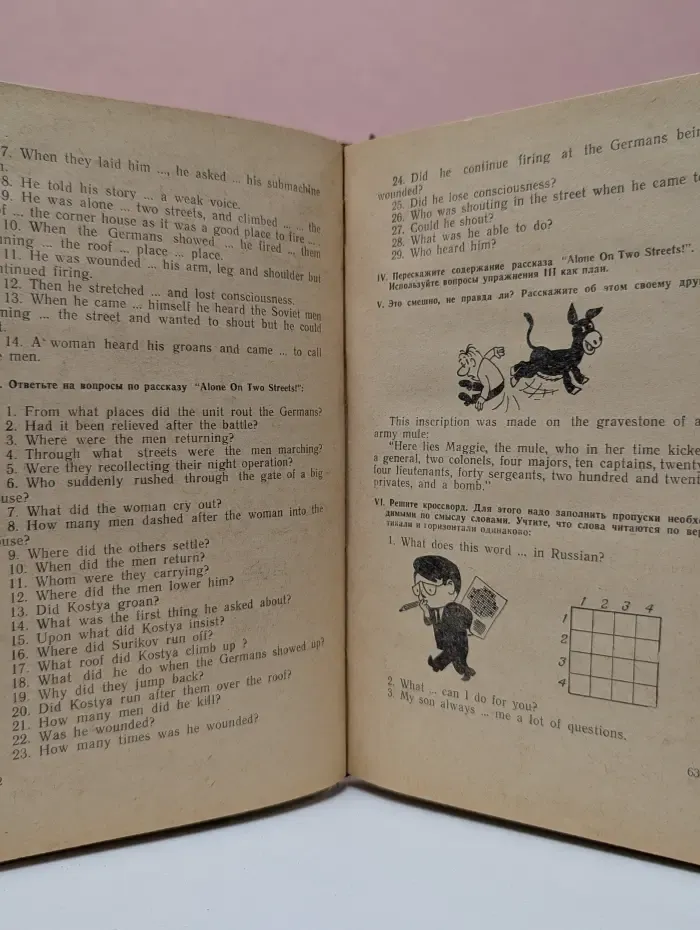 7. When they laid him ..., he asked ... his submachine
8. He told his story ... a weak voice.
9. He was alone ... two streets, and climbed ... ... the
... the corner house as it was a good place to fire ... .
10. When the Germans showed ... he fired ... them
... the roof ... place ... place.
11. He was wounded ... his arm, leg and shoulder but
continued firing.
12. Then he stretched ... and lost consciousness.
13. When he came ... himself he heard the Soviet men
... the street and wanted to shout but he could
14. A woman heard his groans and came ... to call
men.
Ответьте на вопросы по рассказу "Alone On Two Streets!":
1. From what places did the unit rout the Germans?
2. Had it been relieved after the battle?
3. Where were the men returning?
4. Through what streets were the men marching?
5. Were they recollecting their night operation?
6. Who suddenly rushed through the gate of a big
house?
7. What did the woman cry out?
8. How many men dashed after the woman into the
house?
9. Where did the others settle?
10. When did the men return?
11. Whom were they carrying?
12. Where did the men lower him?
13. Did Kostya groan?
14. What was the first thing he asked about?
15. Upon what did Kostya insist?
16. Where did Surikov run off?
17. What roof did Kostya climb up ?
18. What did he do when the Germans showed up?
19. Why did they jump back?
20. Did Kostya run after them over the roof?
21. How many men did he kill?
22. Was he wounded?
23. How many times was he wounded?
24. Did he continue firing at the Germans being
wounded?
25. Did he lose consciousness?
26. Who was shouting in the street when he came to
27. Could he shout?
28. What was he able to do?
29. Who heard him?
IV. Перескажите содержание рассказа "Alone On Two Streets!".
Используйте вопросы упражнения III как план.
V. Это смешно, не правда ли? Расскажите об этом своему другу
This inscription was made on the gravestone of a
army mule:
"Here lies Maggie, the mule, who in her time kicked
a general, two colonels, four majors, ten captains, twenty
four lieutenants, forty sergeants, two hundred and twenty
privates, and a bomb."
VI. Решите кроссворд. Для этого надо заполнить пропуски необхо-
димыми по смыслу словами. Учтите, что слова читаются по вер-
тикали и горизонтали одинаково:
1. What does this word ... in Russian?
1 2 3 4
1
2
3
4
2. What ... can I do for you?
3. My son always ... me a lot of questions.
63